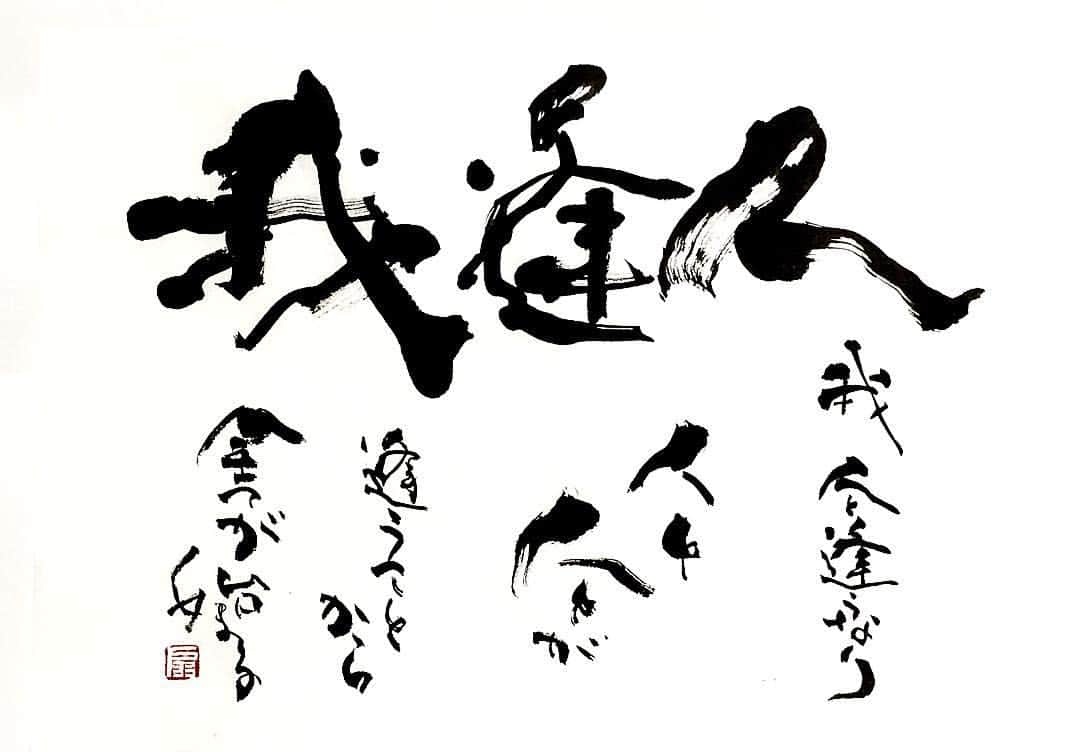 我逢人
我 人と逢うなり
人と
人とが
逢うこと
から
全てが始まる